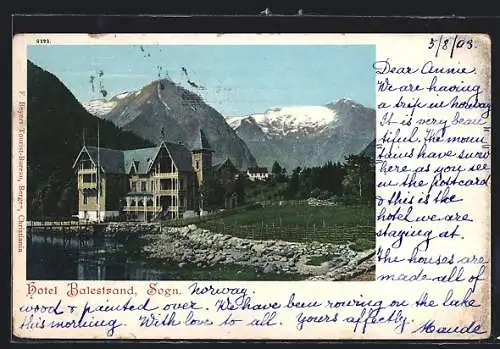 6125.
5/8/03
Dear Annie.
We are having
a trip in Norway
It is very beau
tiful. The moun
tains have snow
here as you see
in the postcard
& this is the
hotel we are
staying at.
The houses are
made all of
F. Beyers Tourist-Bureau, Bergen, Christiania
Hotel Balestrand, Sogn. Norway.
wood & painted over. We have been rowing on the lake
this morning. With love to all. Yours affectly.
Maude